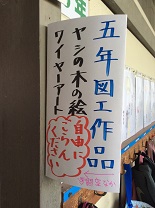 五年図工作品
ヤシの木の絵
ワイヤーアート
自由に
ごらん
ください